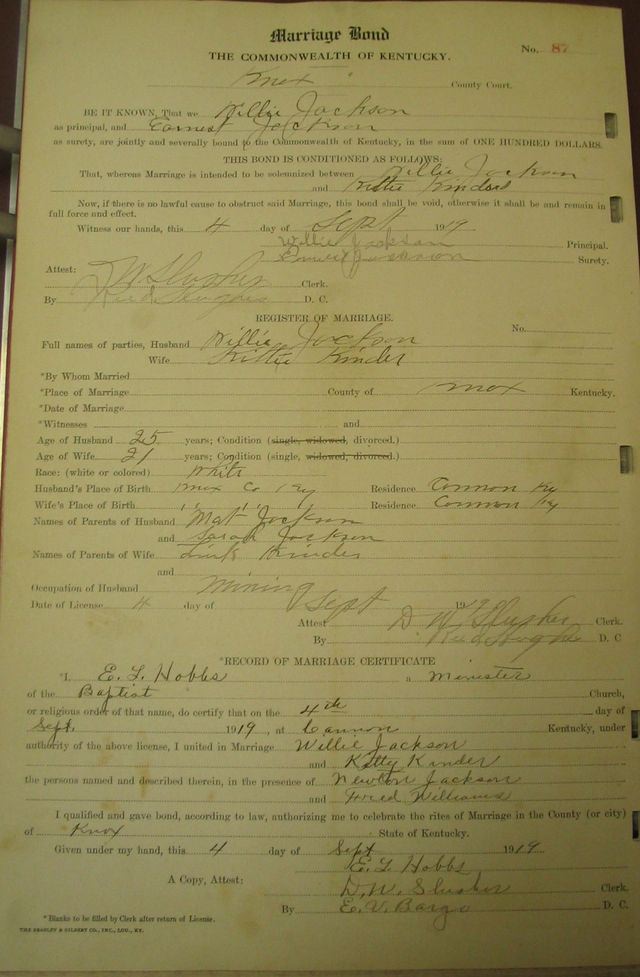 Marriage Bond
THE COMMONWEALTH OF KENTUCKY.
No. 87
Knox County Court.
BE IT KNOWN, That we Willie Jackson
as principal, and Earnest Jackson
as surety, are jointly and severally bound to the Commonwealth of Kentucky, in the sum of ONE HUNDRED DOLLARS.
THIS BOND IS CONDITIONED AS FOLLOWS:
That, whereas Marriage is intended to be solemnized between Willie Jackson
and Kittie Kinder
Now, if there is no lawful cause to obstruct said Marriage, this bond shall be void, otherwise it shall be and remain in
full force and effect.
Witness our hands, this 4 day of Sept 1919
Willie Jackson Principal.
Jackson Surety.
Attest: D W Slusher Clerk.
By D. C.
REGISTER OF MARRIAGE.
No.
Full names of parties, Husband Willie Jackson
Wife Kittie Kinder
*By Whom Married
*Place of Marriage County of Knox Kentucky.
*Date of Marriage
*Witnesses and
Age of Husband 25 years; Condition (single, widowed, divorced.)
Age of Wife 21 years; Condition (single, widowed, divorced.)
Race: (white or colored) White
Husband's Place of Birth Knox Co Ky Residence Cannon Ky
Wife's Place of Birth " " " Residence Cannon Ky
Names of Parents of Husband Mat Jackson
and Sarah Jackson
Names of Parents of Wife Link Kinder
and
Occupation of Husband Mining
Date of License 4 day of Sept 1919
Attest D W Slusher Clerk.
By D. C
*RECORD OF MARRIAGE CERTIFICATE
*I, E. L. Hobbs a Minister
of the Baptist Church,
or religious order of that name, do certify that on the 4th day of
Sept. 1919, at Cannon Kentucky, under
authority of the above license, I united in Marriage Willie Jackson
and Kitty Kinder
the persons named and described therein, in the presence of Newton Jackson
and Fred Williams
I qualified and gave bond, according to law, authorizing me to celebrate the rites of Marriage in the County (or city)
of Knox State of Kentucky.
Given under my hand, this 4 day of Sept 1919
E. L. Hobbs
A Copy, Attest: D. W. Slusher Clerk.
By E. V. Bargo D. C.
*Blanks to be filled by Clerk after return of License.
THE BRADLEY & GILBERT CO., INC., LOU., KY.